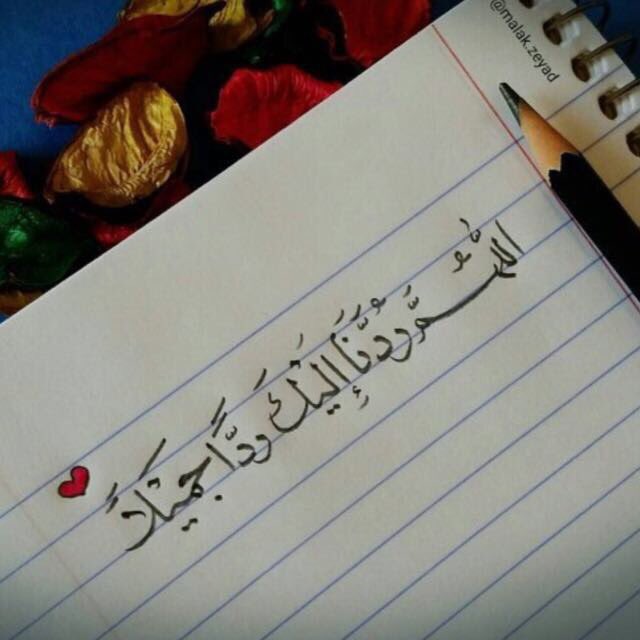 @malak.zeyad
اللهُمَّ رُدَّنَا إِلَيْكَ رَدًّا جَمِيْلاً